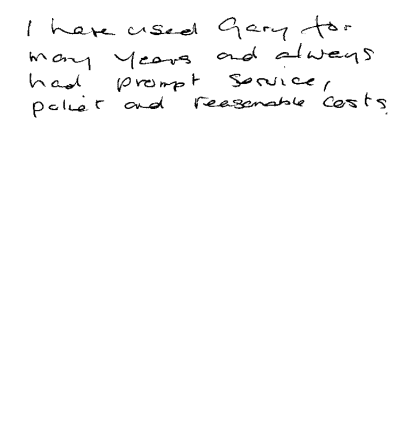 I have used Gary for
many years and always
had prompt service,
poliet and reasonable costs.